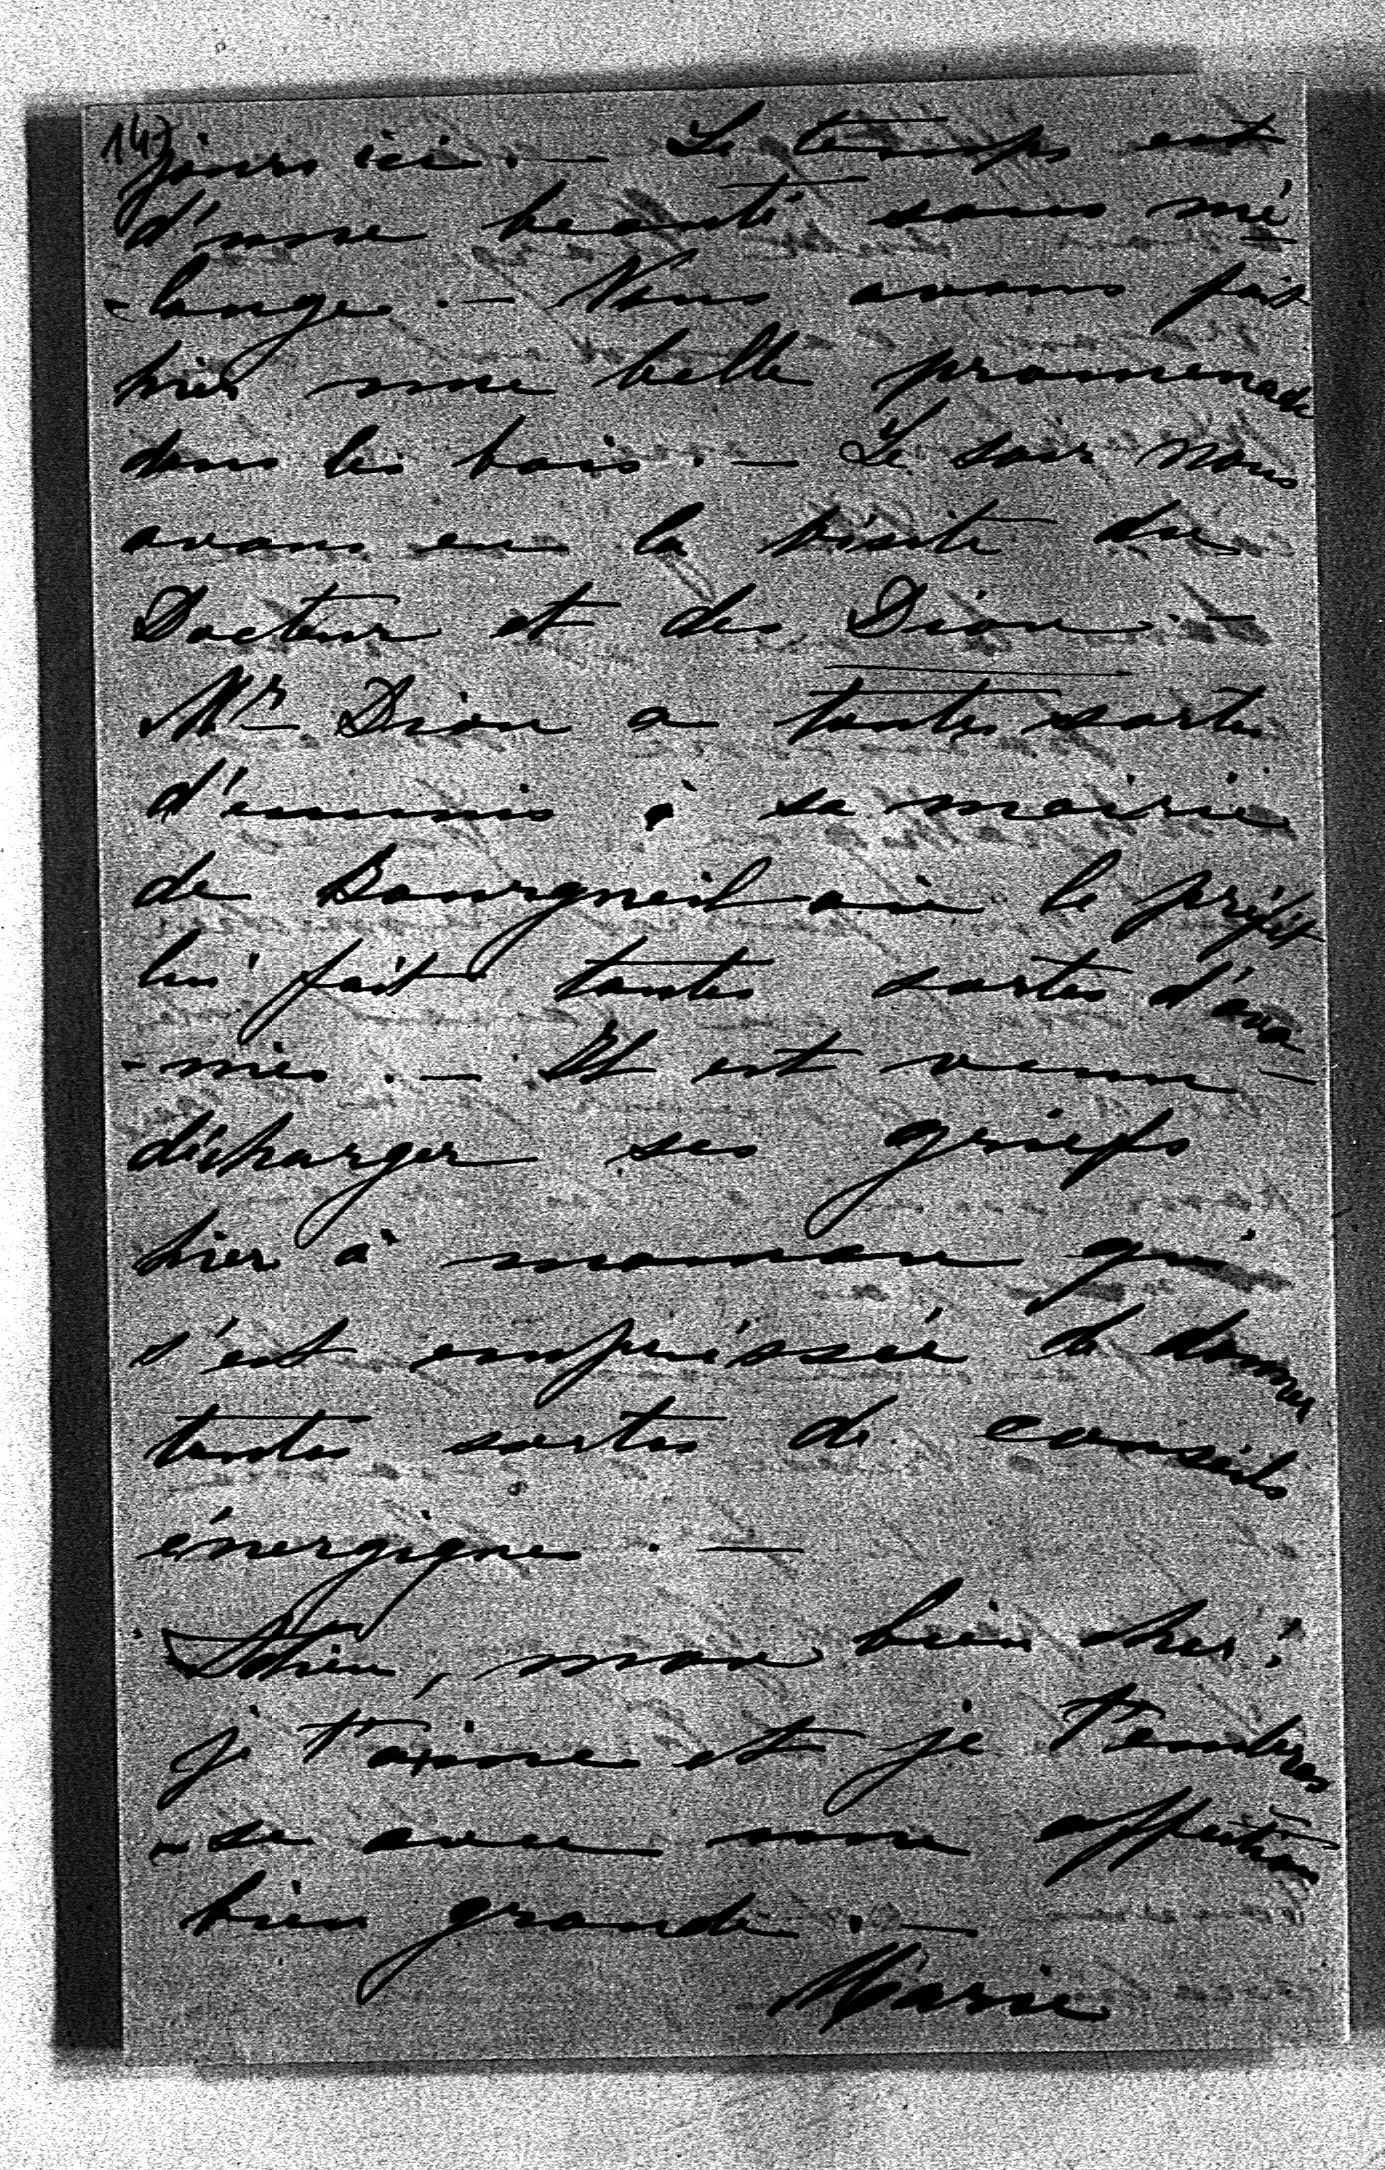 147
jours ici. — Le temps est
d'une beauté sans mé
-lange. — Nous avons fait
hier une belle promenade
dans les bois. — Le soir nous
avons eu la visite du
Docteur et des Dion. —
Mr Dion a toutes sortes
d'ennuis à sa mairie
de Bourgneuf où le préfet
lui fait toutes sortes d'ava
-nies. — Il est venu
décharger ses griefs
hier à maman qui
s'est empressée de donner
toutes sortes de conseils
énergiques. —
Adieu, mon bien cher;
je t'aime et je t'embras
-se avec une affection
bien grande. —
Marie